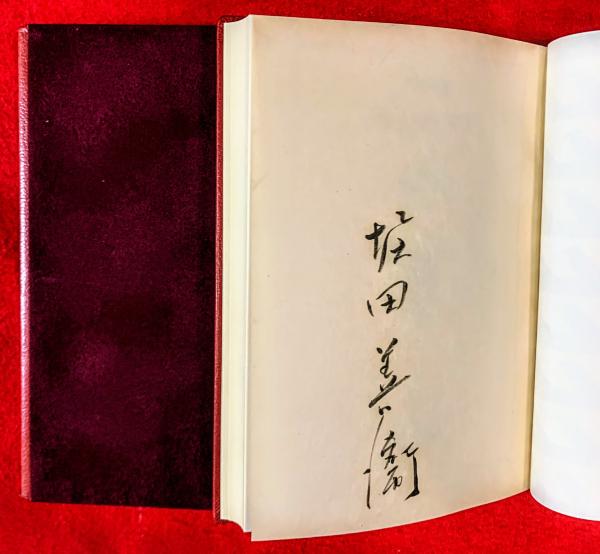 堀田善衞